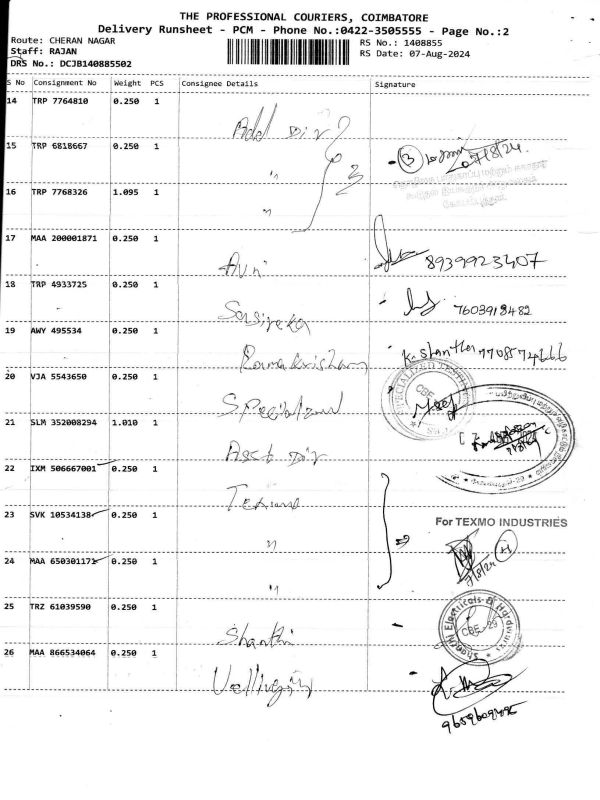 THE PROFESSIONAL COURIERS, COIMBATORE
Delivery Runsheet - PCM - Phone No.:0422-3505555 - Page No.:2
Route: CHERAN NAGAR
RS No.: 1408855
Staff: RAJAN
RS Date: 07-Aug-2024
DRS No.: DCJB140885502
S No Consignment No Weight PCS Consignee Details Signature
14 TRP 7764810 0.250 1 Add Dir
15 TRP 6818667 0.250 1 " 3 07/8/24
16 TRP 7768326 1.095 1 "
17 MAA 200001871 0.250 1 Avni 8939923407
18 TRP 4933725 0.250 1 Sasireka 7603918482
19 AWY 495534 0.250 1 Ramakrishnan K. Shantha 7708574666
20 VJA 5543650 0.250 1
21 SLM 352008294 1.010 1 Asst Dir
22 IXM 506667001 0.250 1 Texmo
23 SVK 10534138 0.250 1 "
For TEXMO INDUSTRIES
24 MAA 650301171 0.250 1 " 7/8/24
25 TRZ 61039590 0.250 1 Shanthi
Shanthi Electricals & Hardwares
CBE - 29
26 MAA 866534064 0.250 1 Vellingiri